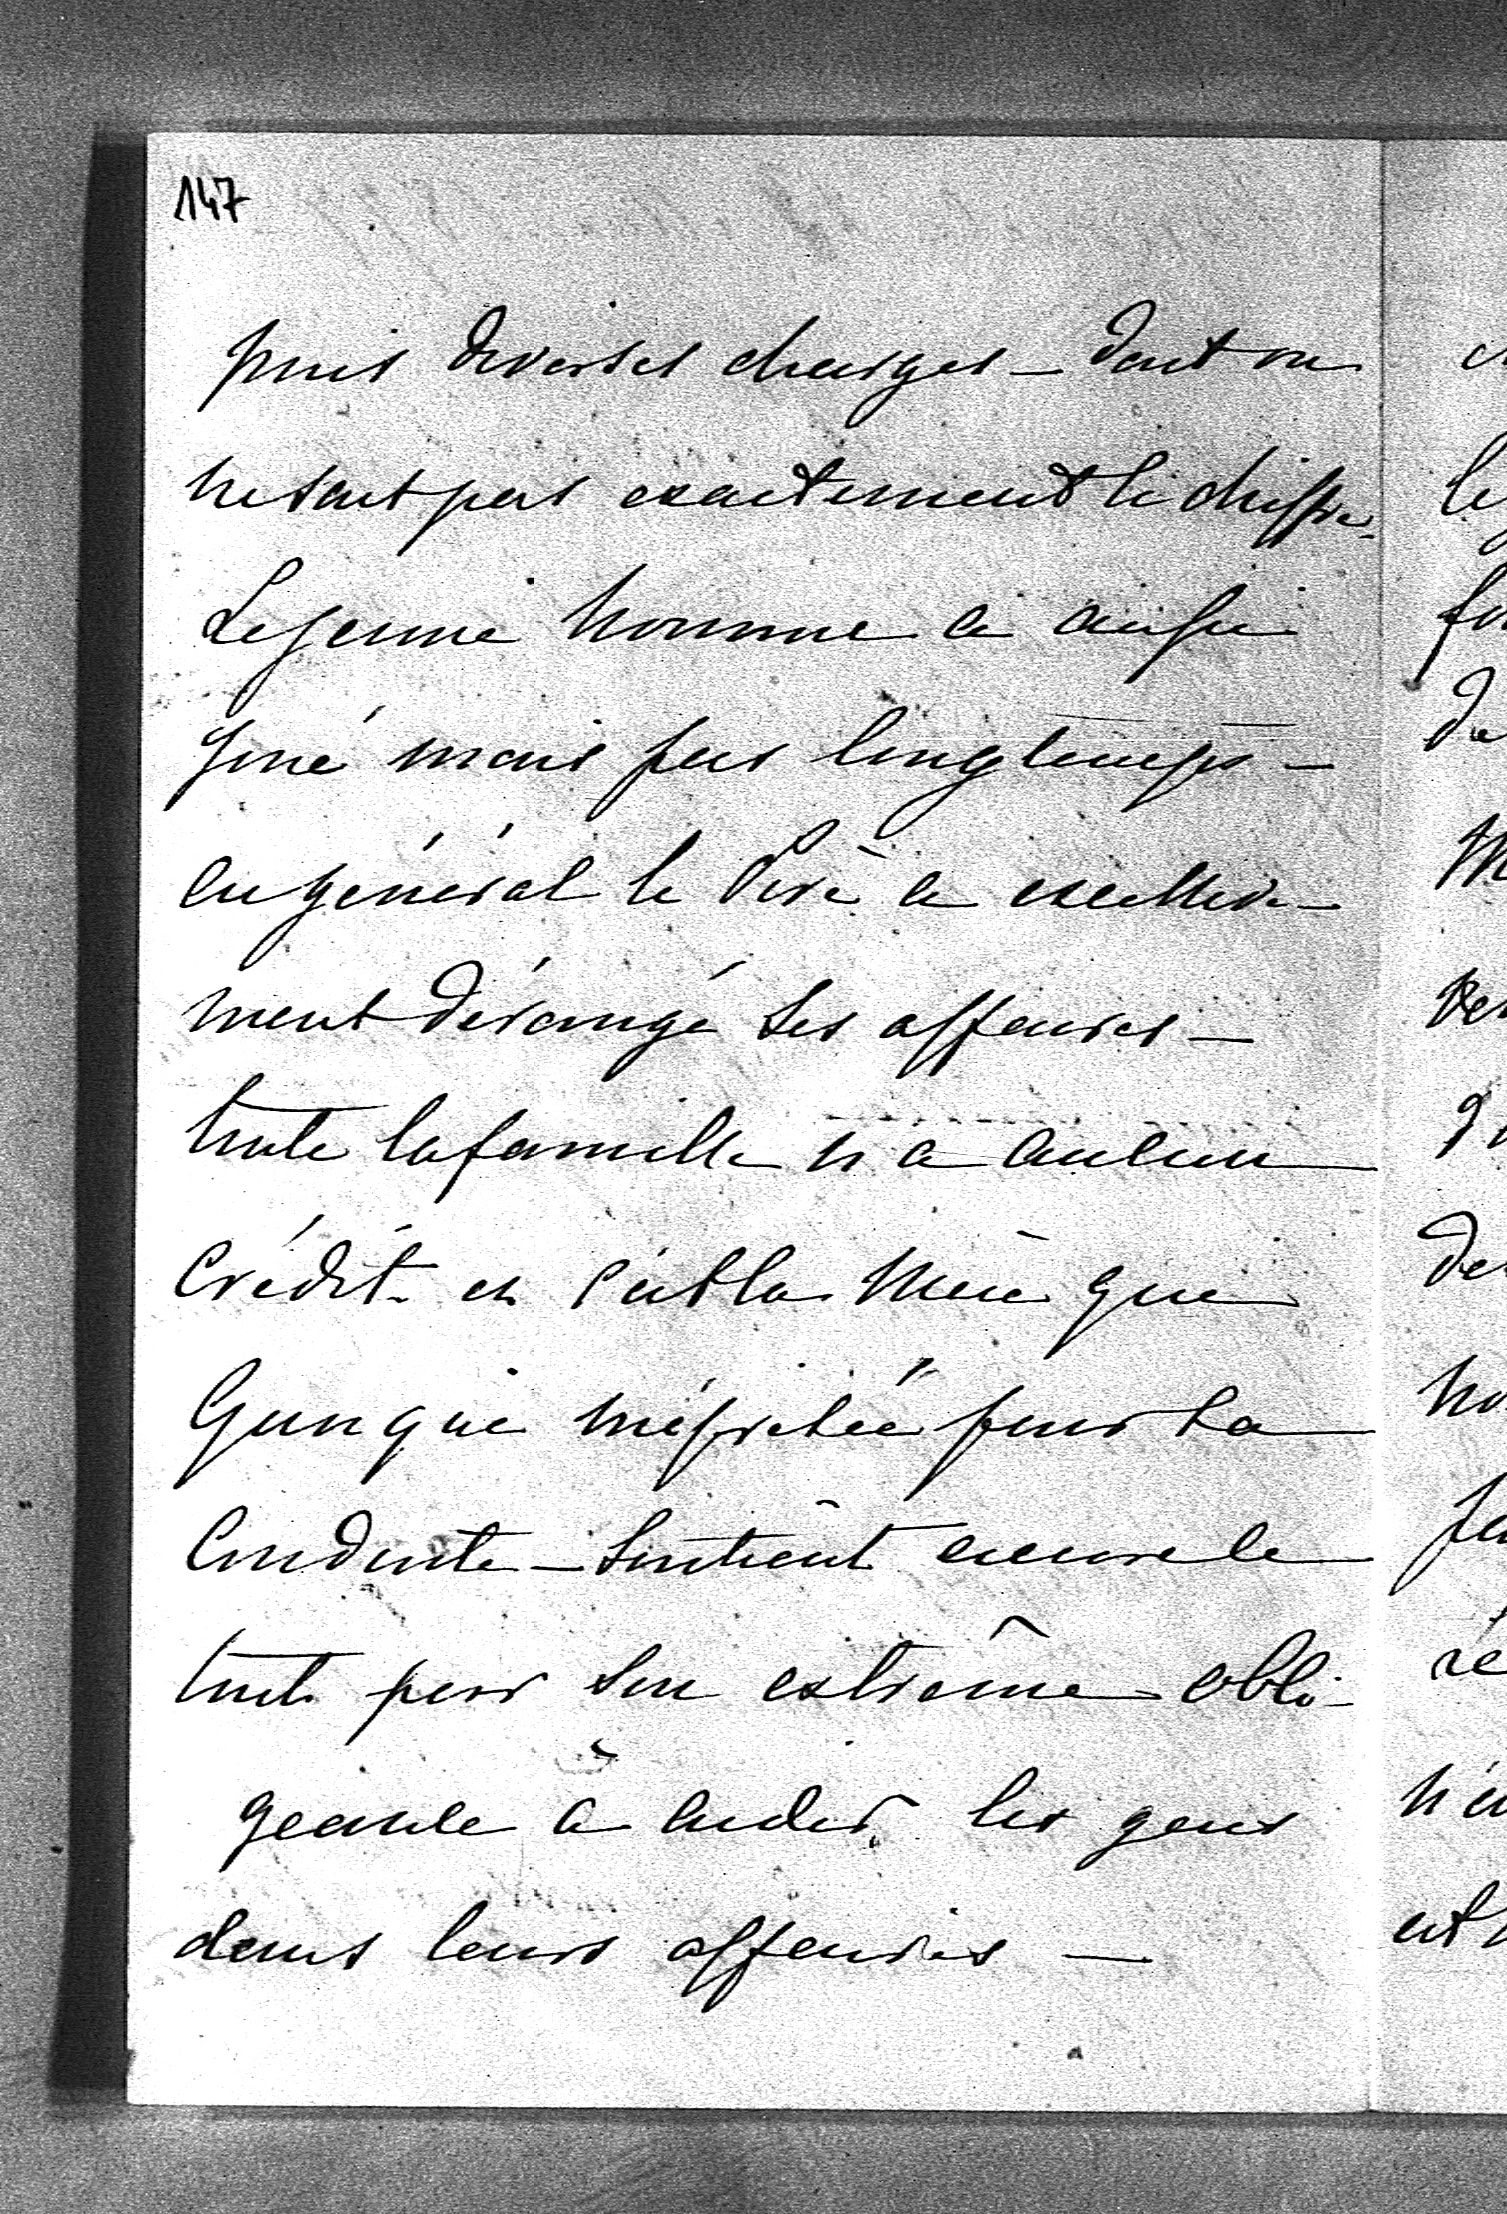 147
puis diverses charges – dont on
ne sait pas exactement le chiffre.
Le jeune homme a aussi
joué mais pas longtemps –
en général le Père a
ment dérangé ses affaires –
toute la famille n'a aucun
crédit – et c'est la Mère qui
quoique méprisée pour sa
conduite – soutient encore le
tout par son extrême obli-
geance à aider les gens
dans leurs affaires –